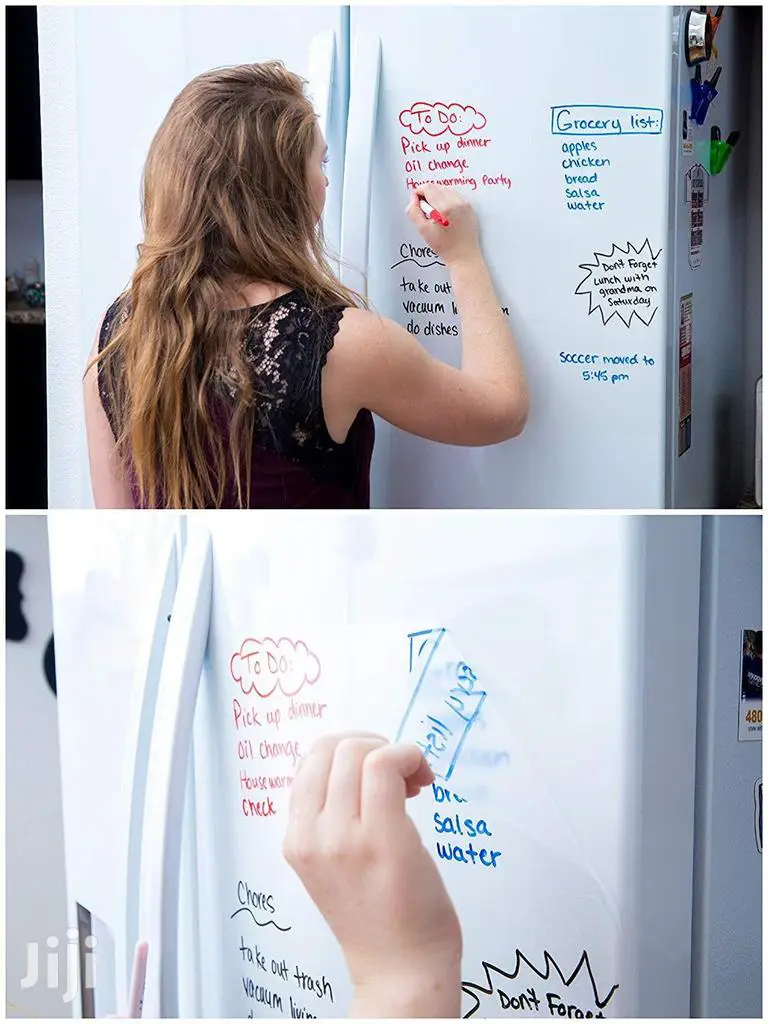 To Do:
Pick up dinner
Oil change
Housewarming Party
Chores
take out
vacuum
do dishes
Grocery list:
apples
chicken
bread
salsa
water
Don't Forget
Lunch with
grandma on
Saturday
Soccer moved to
5:45 pm
To Do:
Pick up dinner
Oil change
Housewarm
check
Chores
take out trash
vacuum livin
list
salsa
water
Don't Forget
480
Jiji